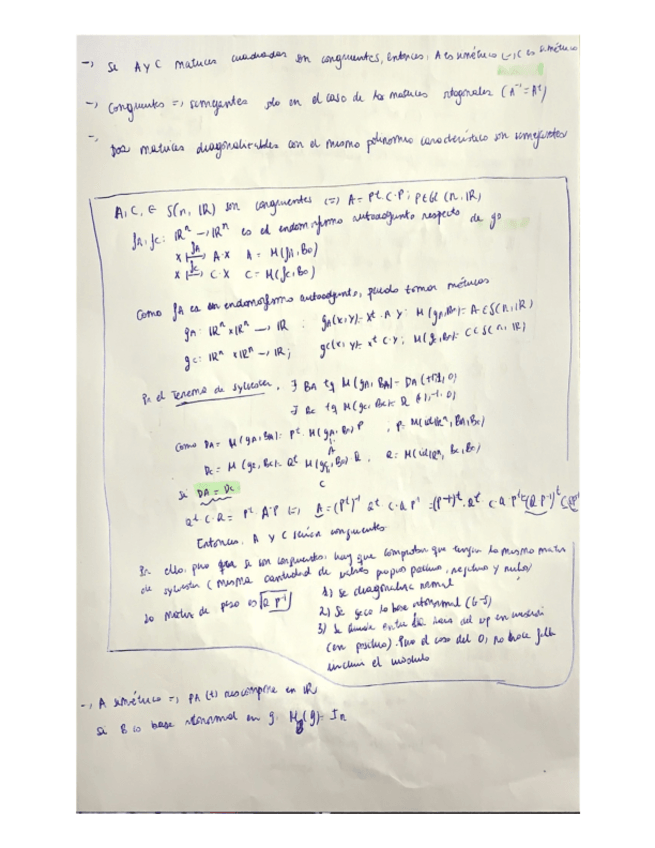 -, Si A y C matrices cuadradas son congruentes, entonces, A es simétrica (-, C es simétrica
-, Congruentes =, semejentes solo en el caso de las matrices ortogonales (A⁻¹ = Aᵗ)
-, Dos matrices diagonalizables con el mismo polinomio característico son semejantes
A, C, ∈ S(n, IR) son congruentes (=) A = Pᵗ. C. P; P∈Gl (n, IR)
fA, fC: IRⁿ -, IRⁿ es el endomorfismo autoadjunto respecto de go
x fA A·x A = M(fA, Bo)
x fC C·x C = M(fC, Bo)
Como fA es un endomorfismo autoadjunto, puedo tomar métricas
gA: IRⁿ x IRⁿ -, IR ; gA(x,y)= xᵗ·A y; M(gA, Bo)= A∈S(n, IR)
gC: IRⁿ x IRⁿ -, IR; gC(x,y)= xᵗ C·y; M(gC, Bo)= C∈S(n, IR)
el Teorema de Sylvester, ∃ BA tq M(gA, BA)= DA (+1,-1, 0)
∃ BC tq M(gC, BC)= (1,-1, 0)
Como DA = M(gA, BA)= Pᵗ. M(gA, Bo) P ; P= M(idIRⁿ, BA, Bo)
A
DC = M(gC, BC)= Qᵗ M(gC, Bo) Q, Q= M(idIRⁿ, BC, Bo)
C
Si DA = DC
Qᵗ C·Q = Pᵗ. A·P (=) A = (Pᵗ)⁻¹ Qᵗ. C·Q P⁻¹ = (P⁻¹)ᵗ. Qᵗ C·Q P⁻¹ = (Q P⁻¹)ᵗ C (Q P⁻¹)
Entonces, A y C serían congruentes
ello, para ver si son congruentes, hay que comprobar que tengan la misma matriz
de Sylvester (misma cantidad de valores propios positivos, negativos y nulos)
La matriz de paso es Q P⁻¹
1) Se diagonaliza normal
2) Se saca la base ortonormal (G-S)
3) Se divide entre la raiz del vp en
(en positivo). Para el caso del 0, no hace falta
incluir el módulo
-, A simétrica =, PA (t) descompone en IR
Si B es base ortonormal en g: MB(g)= In